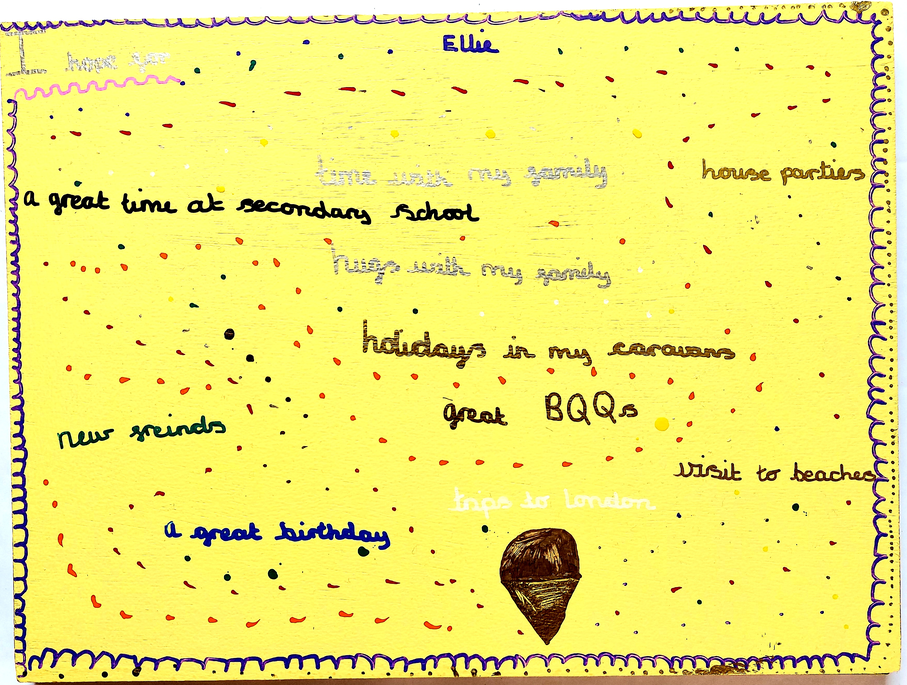 Ellie
I have you
time with my family
house parties
a great time at secondary school
hugs with my family
holidays in my caravans
great BQQs
new freinds
visit to beaches
trips to london
a great birthday